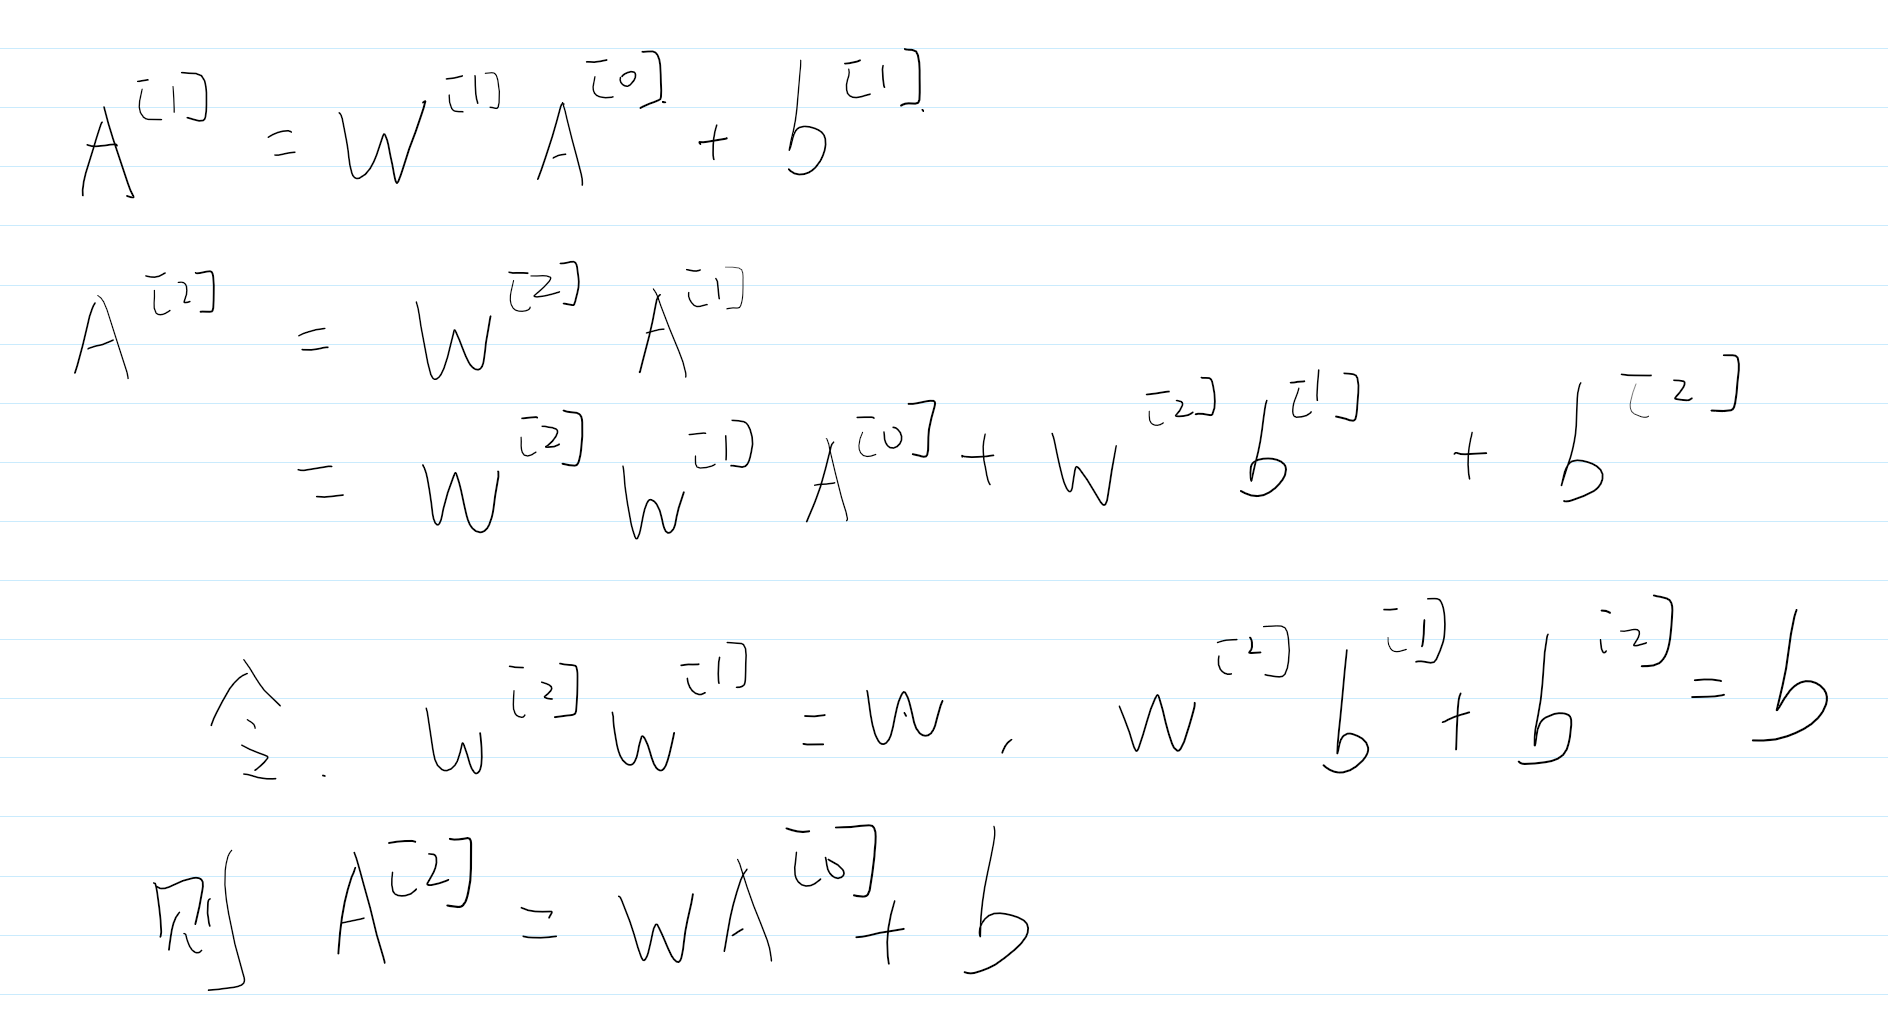 A^[1] = W^[1] A^[0] + b^[1]
A^[2] = W^[2] A^[1]
= W^[2] W^[1] A^[0] + W^[2] b^[1] + b^[2]
令. W^[2] W^[1] = W, W^[2] b^[1] + b^[2] = b
则 A^[2] = WA^[0] + b